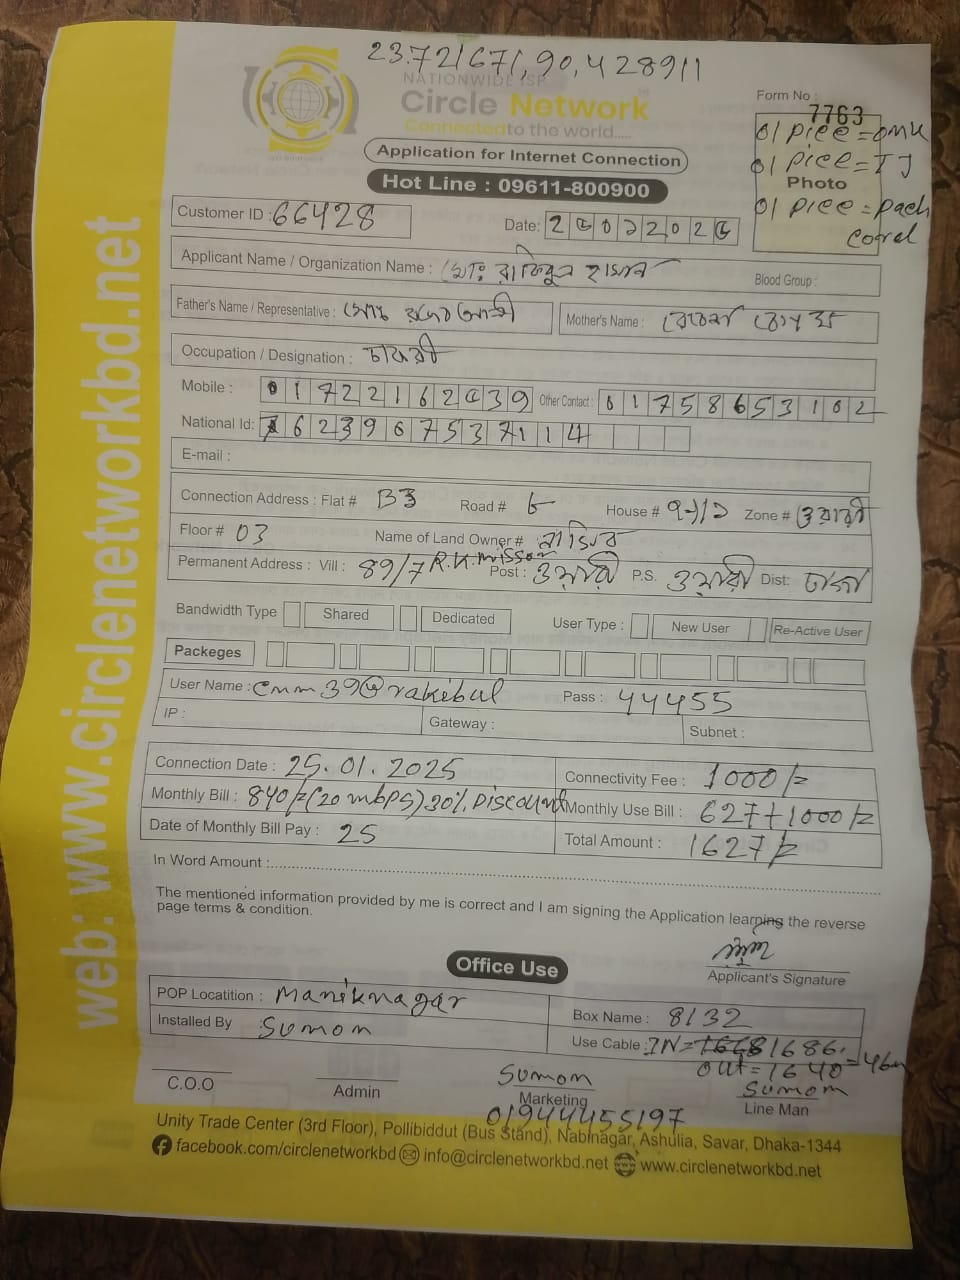 23.721671, 90.428911
NATIONWIDE ISP
Circle Network
Connected to the world.....
Application for Internet Connection
Hot Line : 09611-800900
Form No : 7763
01 piee = onu
01 piee = TJ
Photo
01 piee = pach
Corel
Customer ID : 66428
Date:
Applicant Name / Organization Name : মোঃ রাকিবুল হাসান
Blood Group :
Father's Name / Representative :
Mother's Name :
Occupation / Designation : চাকরী
Mobile :
Other Contact : 01758653102
National Id: 623967537114
E-mail :
Connection Address : Flat # B3 Road # House # Zone # ওয়ারী
Floor # 03 Name of Land Owner #
Permanent Address : Vill : 89/7 R.K. mission Post : ওয়ারী P.S. ওয়ারী Dist: ঢাকা
Bandwidth Type Shared Dedicated User Type : New User Re-Active User
Packeges
User Name : cnm39@rakibul Pass : 44455
IP : Gateway : Subnet :
Connection Date : 25.01.2025 Connectivity Fee : 1000/=
Monthly Bill : 840/= (20 mbps) 30% Discount Monthly Use Bill : 627+1000/=
Date of Monthly Bill Pay : 25 Total Amount : 1627/=
In Word Amount :
The mentioned information provided by me is correct and I am signing the Application learning the reverse
page terms & condition.
Applicant's Signature
Office Use
POP Locatition : Maniknagar Box Name : 8132
Installed By : Sumon Use Cable : IN= 1686
out = 1640 = 46m
C.O.O Admin Sumon Marketing Sumom Line Man
01944455197
Unity Trade Center (3rd Floor), Pollibiddut (Bus Stand), Nabinagar, Ashulia, Savar, Dhaka-1344
facebook.com/circlenetworkbd info@circlenetworkbd.net www.circlenetworkbd.net
web: www.circlenetworkbd.net